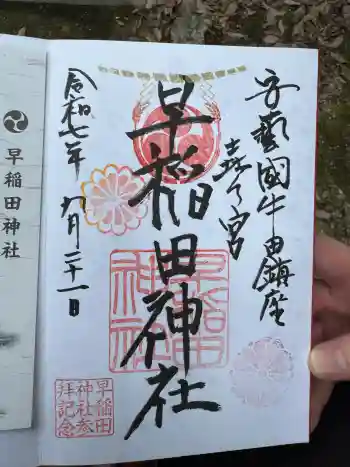 安藝國牛田鎮座
早稲田神社
令和七年
九月二十一日
早稲田
神社
早稲田
神社参
拝記念
早稲田神社